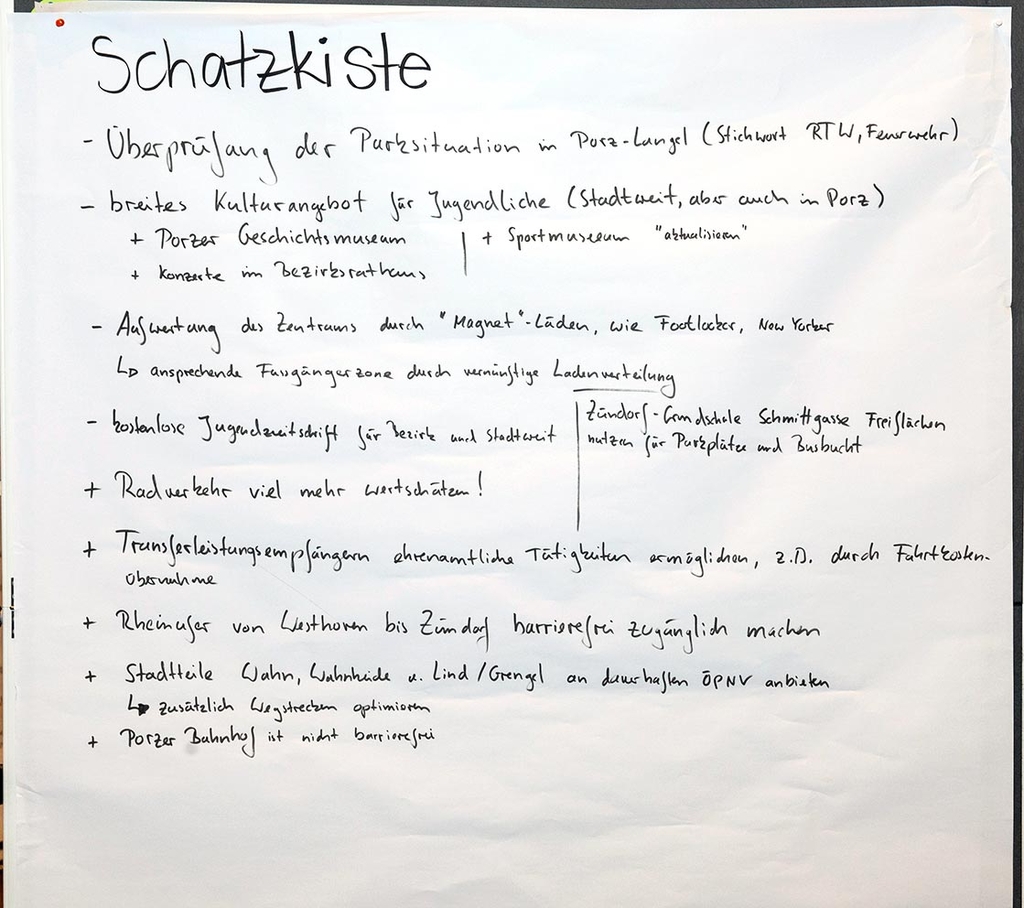 Schatzkiste
- Überprüfung der Parksituation in Porz-Langel (Stichwort RTW, Feuerwehr)
- breites Kulturangebot für Jugendliche (Stadtweit, aber auch in Porz)
+ Porzer Geschichtsmuseum | + Sportmuseeum "aktualisieren"
+ Konzerte im Bezirksrathaus
- Aufwertung des Zentrums durch "Magnet"-Läden, wie Footlocker, New Yorker
↳ ansprechende Fussgängerzone durch vernünftige Ladenverteilung
- kostenlose Jugendzeitschrift für Bezirk und Stadtweit
Zündorf - Grundschule Schmittgasse Freiflächen
nutzen für Parkplätze und Busbucht
+ Radverkehr viel mehr wertschätzen!
+ Transferleistungsempfängern ehrenamtliche Tätigkeiten ermöglichen, z.B. durch Fahrtkosten-
übernahme
+ Rheinufer von Westhoven bis Zündorf barrierefrei zugänglich machen
+ Stadtteile Wahn, Wahnheide u. Lind/Grengel an dauerhaften ÖPNV anbieten
↳ zusätzlich Wegstrecken optimieren
+ Porzer Bahnhof ist nicht barrierefrei